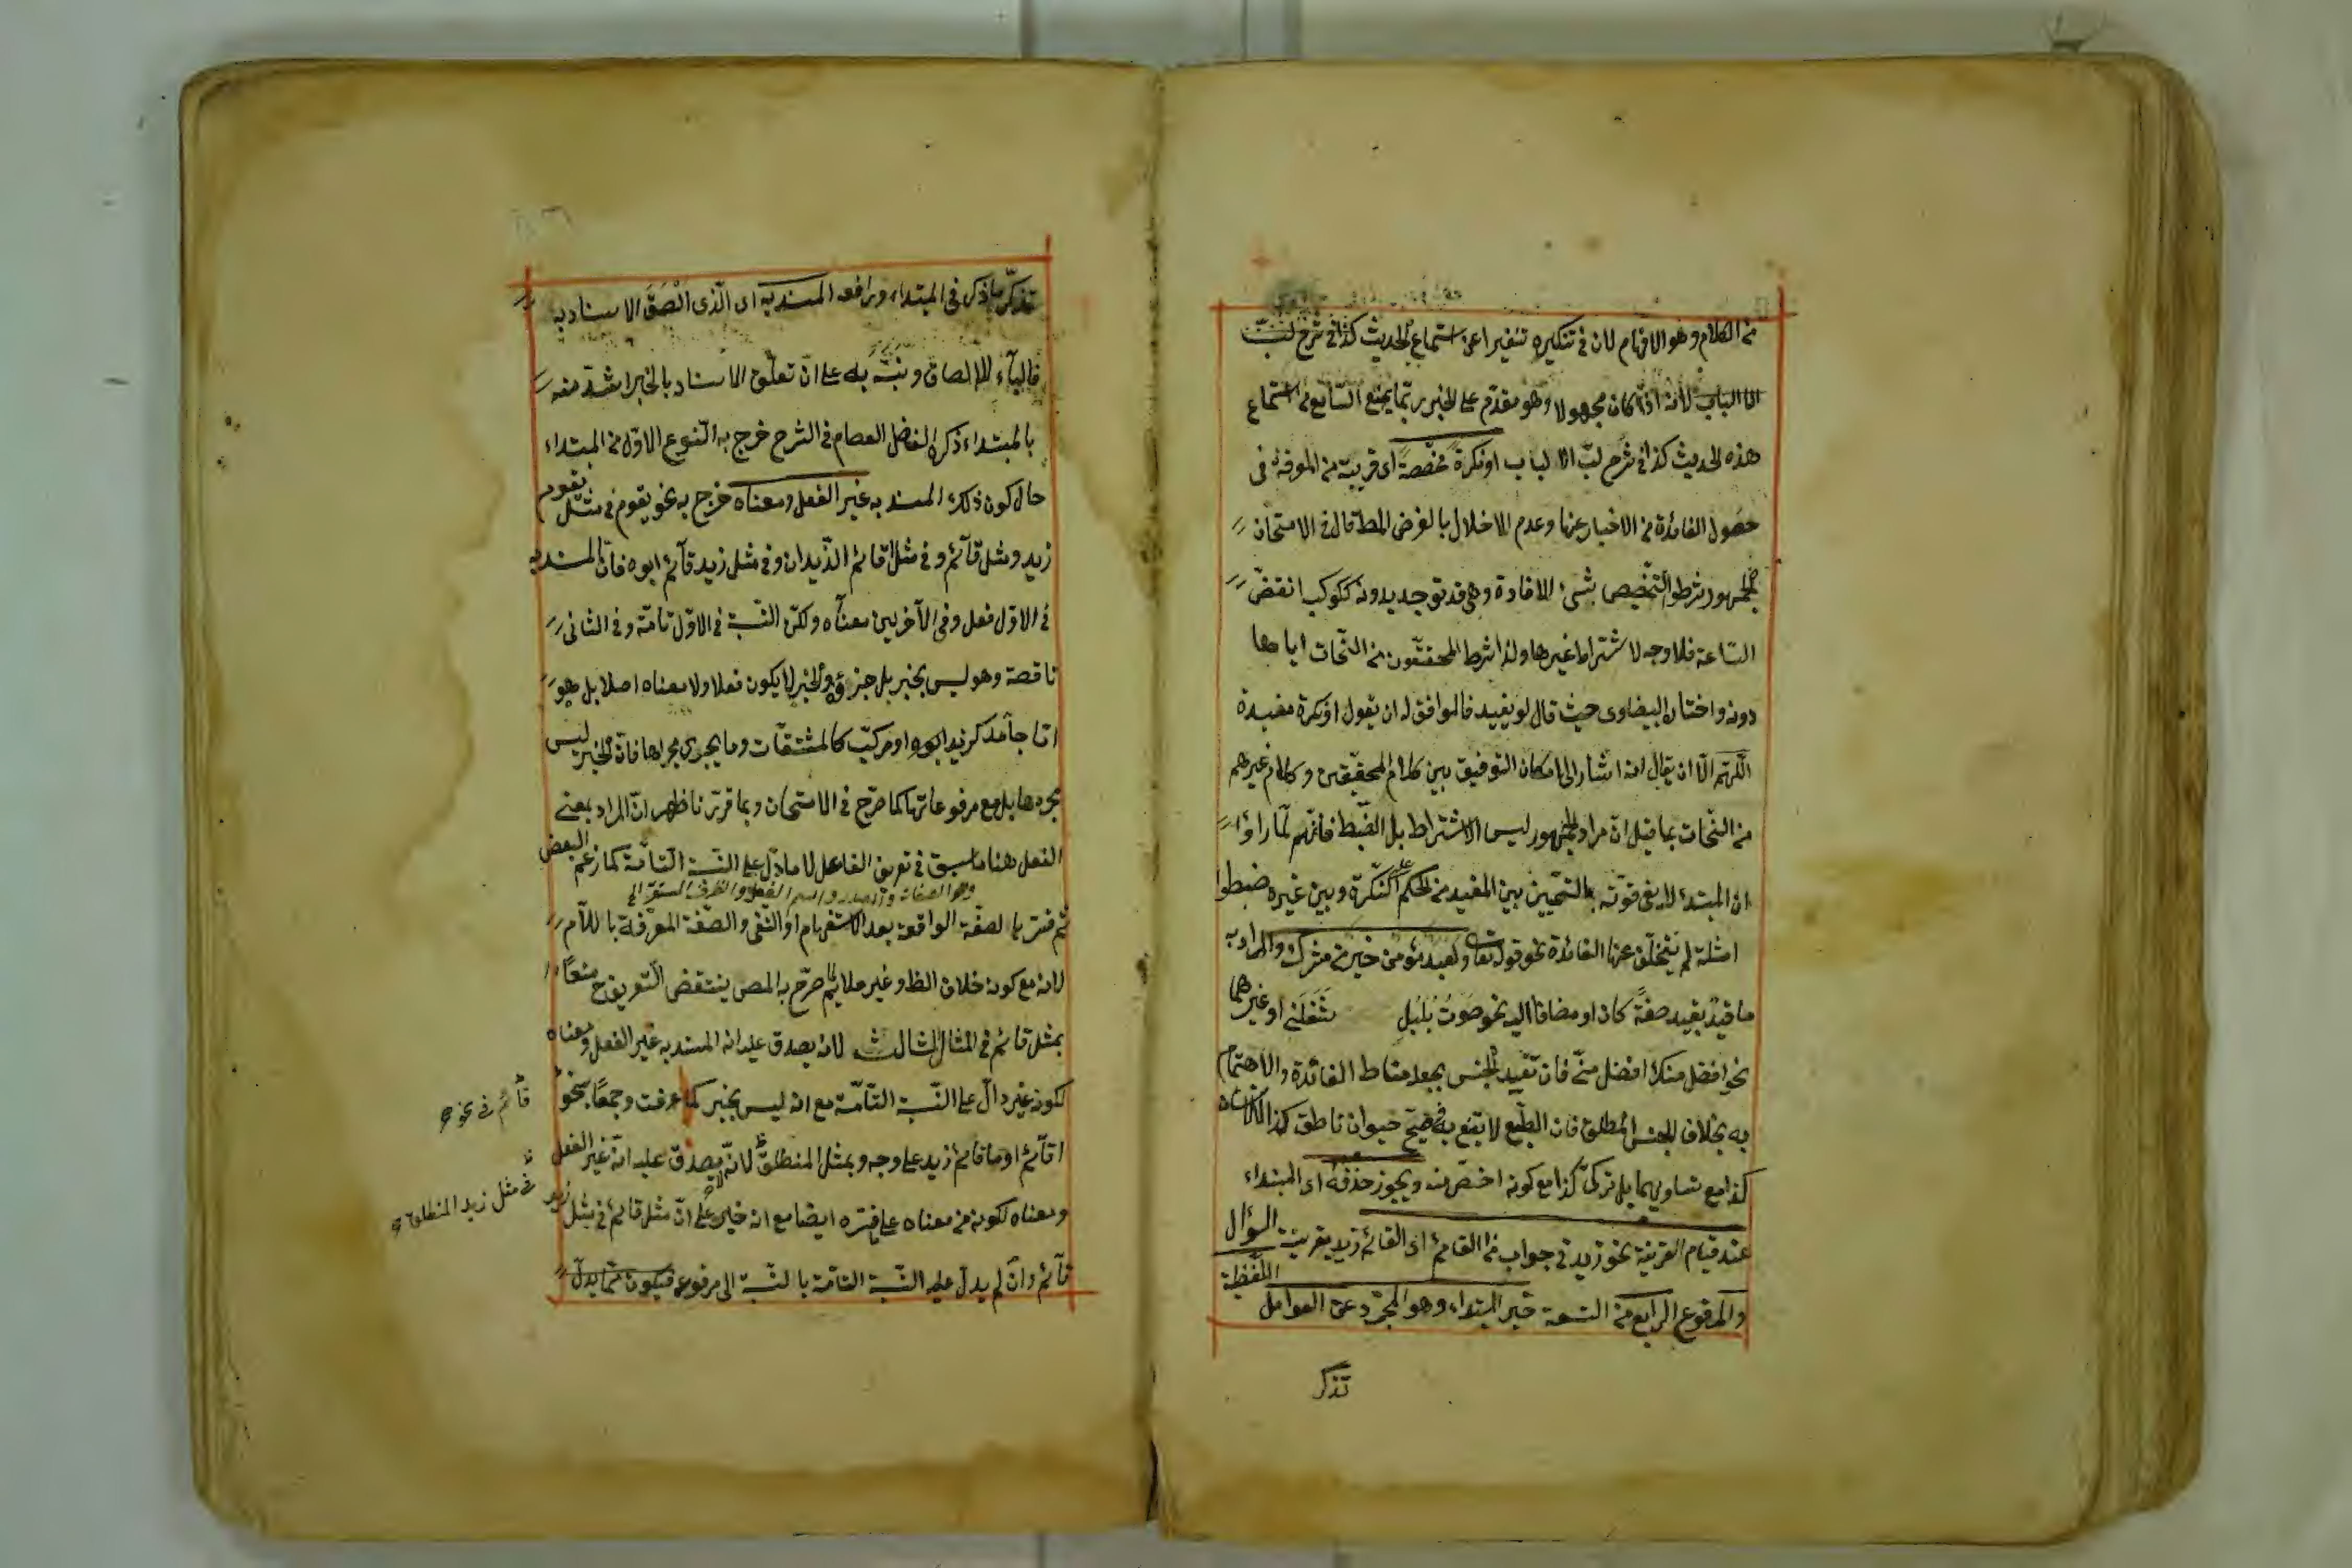 من الكلام وهو الافهام لان في تنكيره تنفيرا عن استماع الحديث كذا في شرح لبّ
الالباب لانه اذا كان مجهولا وهو مقدّم على الخبر ربّما يمنع السّامع من استماع
هذه الحديث كذا في شرح لبّ الالباب او نكرة مخصّصة اى قريبة من المعرفة فى
حصول الفائدة من الاخبار عنها وعدم الاخلال بالغرض المط قال في الامتحان
الجمهور شرطوا التّخصيص بشئ الافادة وهى قد توجد بدونه ككوكب انقضّ
السّاعة فلا وجه لاشتراط غيرها ولذا شرط المحققون من النّحات اياها
دونه واختاره البيضاوى حيث قال لو يفيد فالموافق له ان يقول او نكرة مفيدة
اللّهمّ الّا ان يقال انه اشار الى امكان التوفيق بين كلام المحقّقين وكلام غيرهم
من النّحات بما قيل انّ مراد الجمهور ليس الاشتراط بل الضّبط فانّهم لمّا راوا
ان المبتدئ لا يفى قوّته بالتّمييز بين المفيد من الحكم على النّكرة وبين غيره ضبطوا
امثلة لم يتخلّف عنها الفائدة نحو قوله تعا ولعبد مؤمن خير من مشرك والمراد به
ما قيّد بقيد صفةً كان او مضافا اليه نحو صوتُ بُلبُلٍ شَغَلَنى او غيرهما
نحو افضل منك افضل منّى فان تقييد الجنس يجعله مناط الفائدة والاهتمام
به بخلاف الجنس المطلق فان الطّبع لا يقنع به فيصحّ حيوان ناطق كذا لا انسان
كذا مع تساويهما بل تركىّ كذا مع كونه اخصّ منه ويجوز حذفه اى المبتداء
عند قيام القرينة نحو زيد في جواب من القائم اى القائم زيد بقرينة السّؤال
اللّفظيّة
والمرفوع الرابع من التسعة خبر المبتداء وهو المجرّد عن العوامل
تذكّر
تذكّر ما ذكر في المبتداء ورافعه المسند به اى الّذى الْصَقَ الاسناد به
فالباء للالصاق ونبّه به على انّ تعلّق الاسناد بالخبر اشدّ منه
بالمبتداء ذكره الفاضل العصام في الشرح خرج به النّوع الاوّل من المبتداء
حال كون ذلك المسند به غير الفعل ومعناه خرج به نحو يقوم في مثل يقوم
زيد ومثل قآئم و في مثل اقائم الزّيدان وفى مثل زيد قآئم ابوه فانّ المسند به
في الاوّل فعل وفى الآخرين معناه ولكنّ النّسبة في الاوّل تامّة وفى الثانى
ناقصة وهو ليس بخبر بل جزئه والخبر لا يكون فعلا ولا معناه اصلا بل هو
امّا جامد كزيد ابوه او مركّب كالمشتقات وما يجرى مجراها فانّ الخبر ليس
مجردها بل مع مرفوعاتها كما صرّح في الامتحان وبما قرّرنا ظهر انّ المراد بمعنى
الفعل هنا ما سبق في تعريف الفاعل لا ما دلّ على النّسبة التّامّة كما زعم البعض
وهو الصفات والمصدر واسم الفعل والظرف المستقرّ الى
ثمّ فسّر بالصفة الواقعة بعد الاستفهام او النّفى والصّفة المعرّفة باللّام
لانه مع كونه خلاف الظ وغير ملايم لما صرّح به المص ينتقض التّعريف ح منعًا
بمثل قائم في المثال الثالث لانه يصدق عليه انه المسند به غير الفعل ومعناه
لكونه غير دالّ على النّسبة التّامّة مع انه ليس بخبر كما عرفت وجمعًا بنحو
اقآئم او ما قائم زيد على وجه وبمثل المنطلق لانّه يصدق عليه انّه غير الفعل
ومعناه لكونه من معناه على ما فسّره ايضا مع انه خبر على انّ مثل قائم في مثل زيد
قآئم وان لم يدلّ على النّسبة التامّة بالنّسبة الى مرفوعه فيكون ممّا يدلّ
قآئم في نحو
في مثل زيد المنطلق